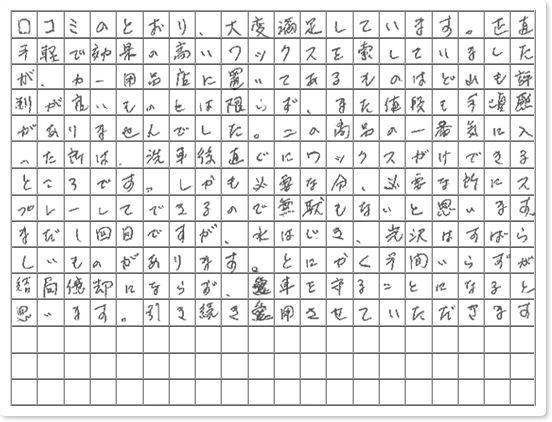 口コミのとおり、大変満足しています。正直
手軽で効果の高いワックスを索していました
が、カー用品店に置いてあるものはどれも評
判が良いものとは限らず、また値段も手頃感
がありませんでした。この商品の一番気に入
った所は、洗車後直ぐにワックスがけできる
ところです。しかも必要な分、必要な所にス
プレーしてできるので無駄もないと思います。
まだ1回目ですが、水はじき、光沢はすばら
しいものがあります。とにかく手間いらずが
結局億却にならず、愛車を守ることになると
思います。引き続き愛用させていただきます